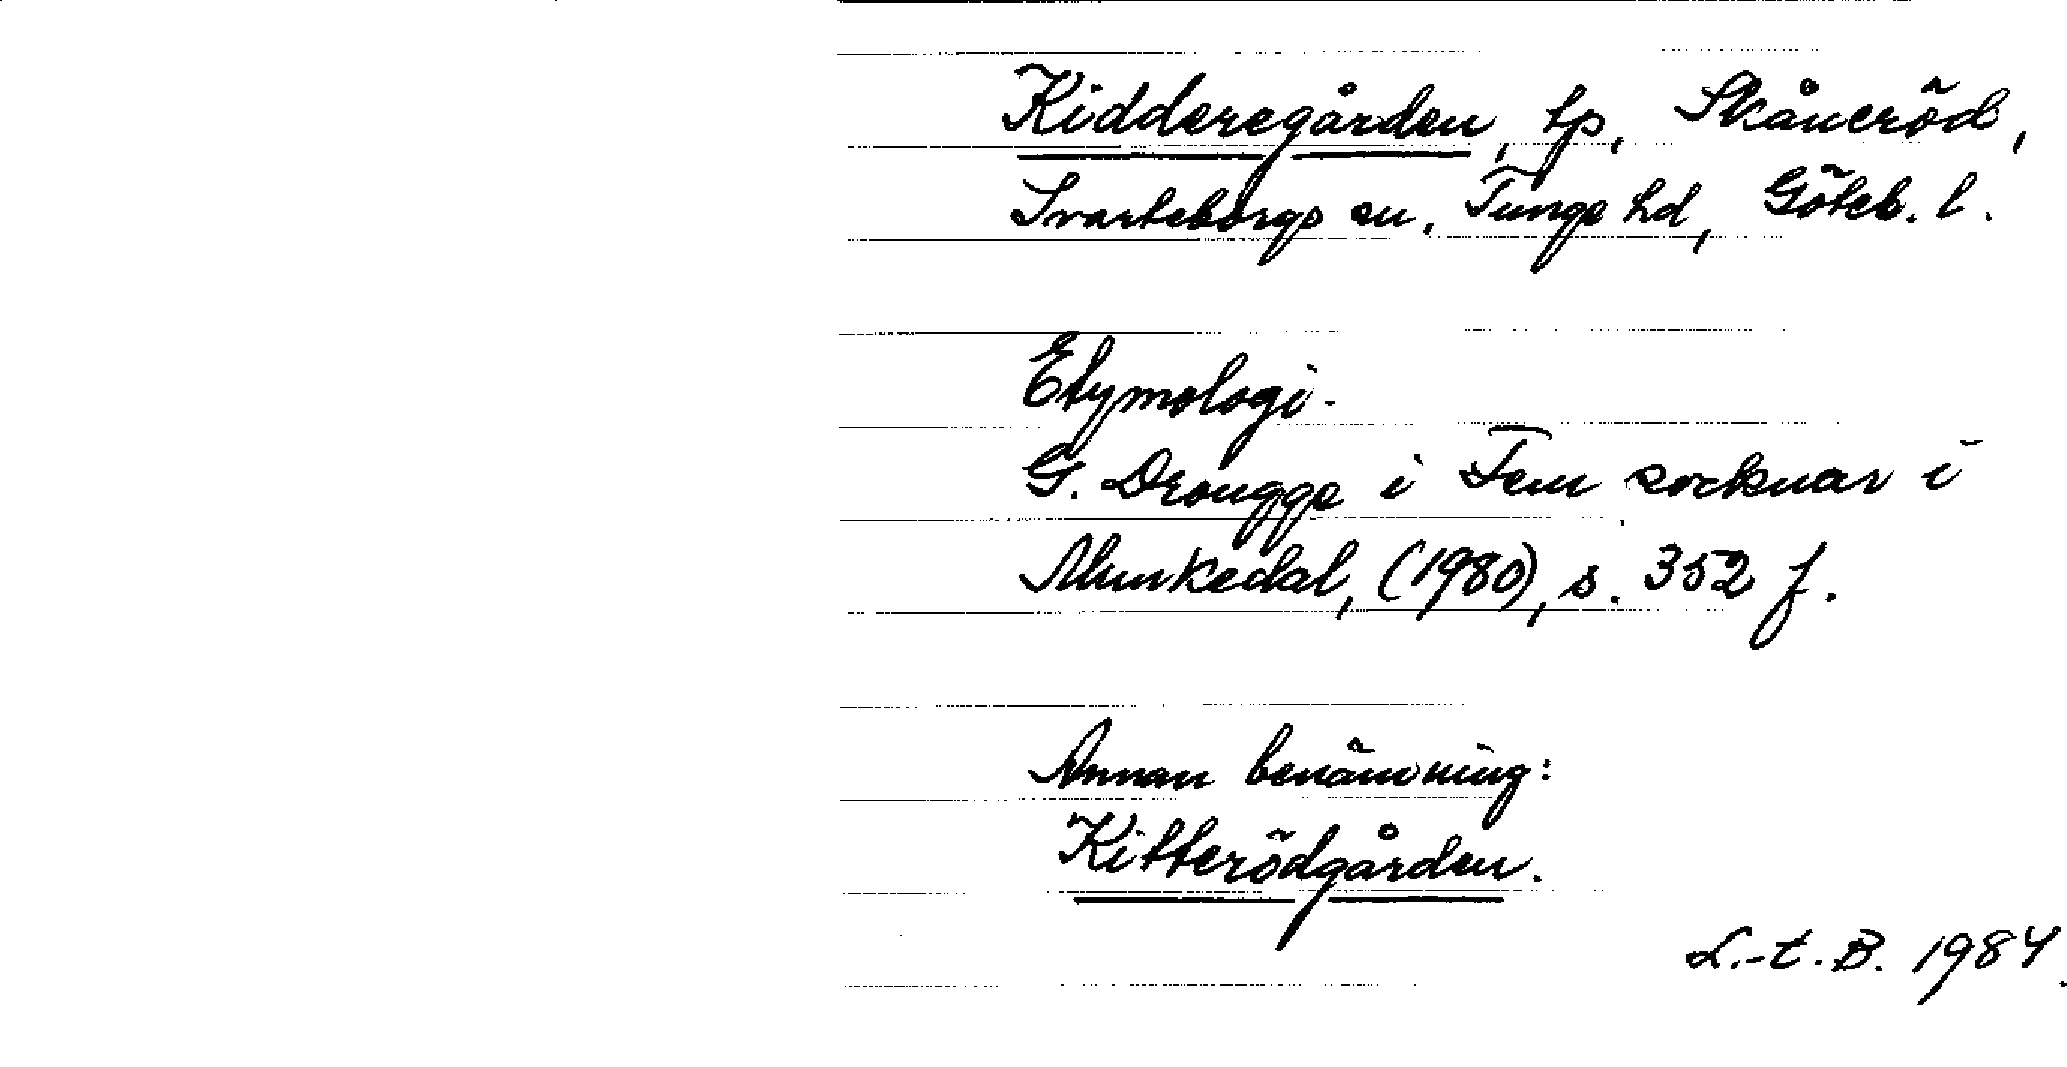 Kidderegården, tp, Skåneröd,
Svarteborgs sn, Tunge hd, Göteb. l.
Etymologi.
G. Drougge i Fem socknar i
Munkedal, (1980), s. 352 f.
Annan benämning:
Kitterödgården.
L.-E. B. 1984.